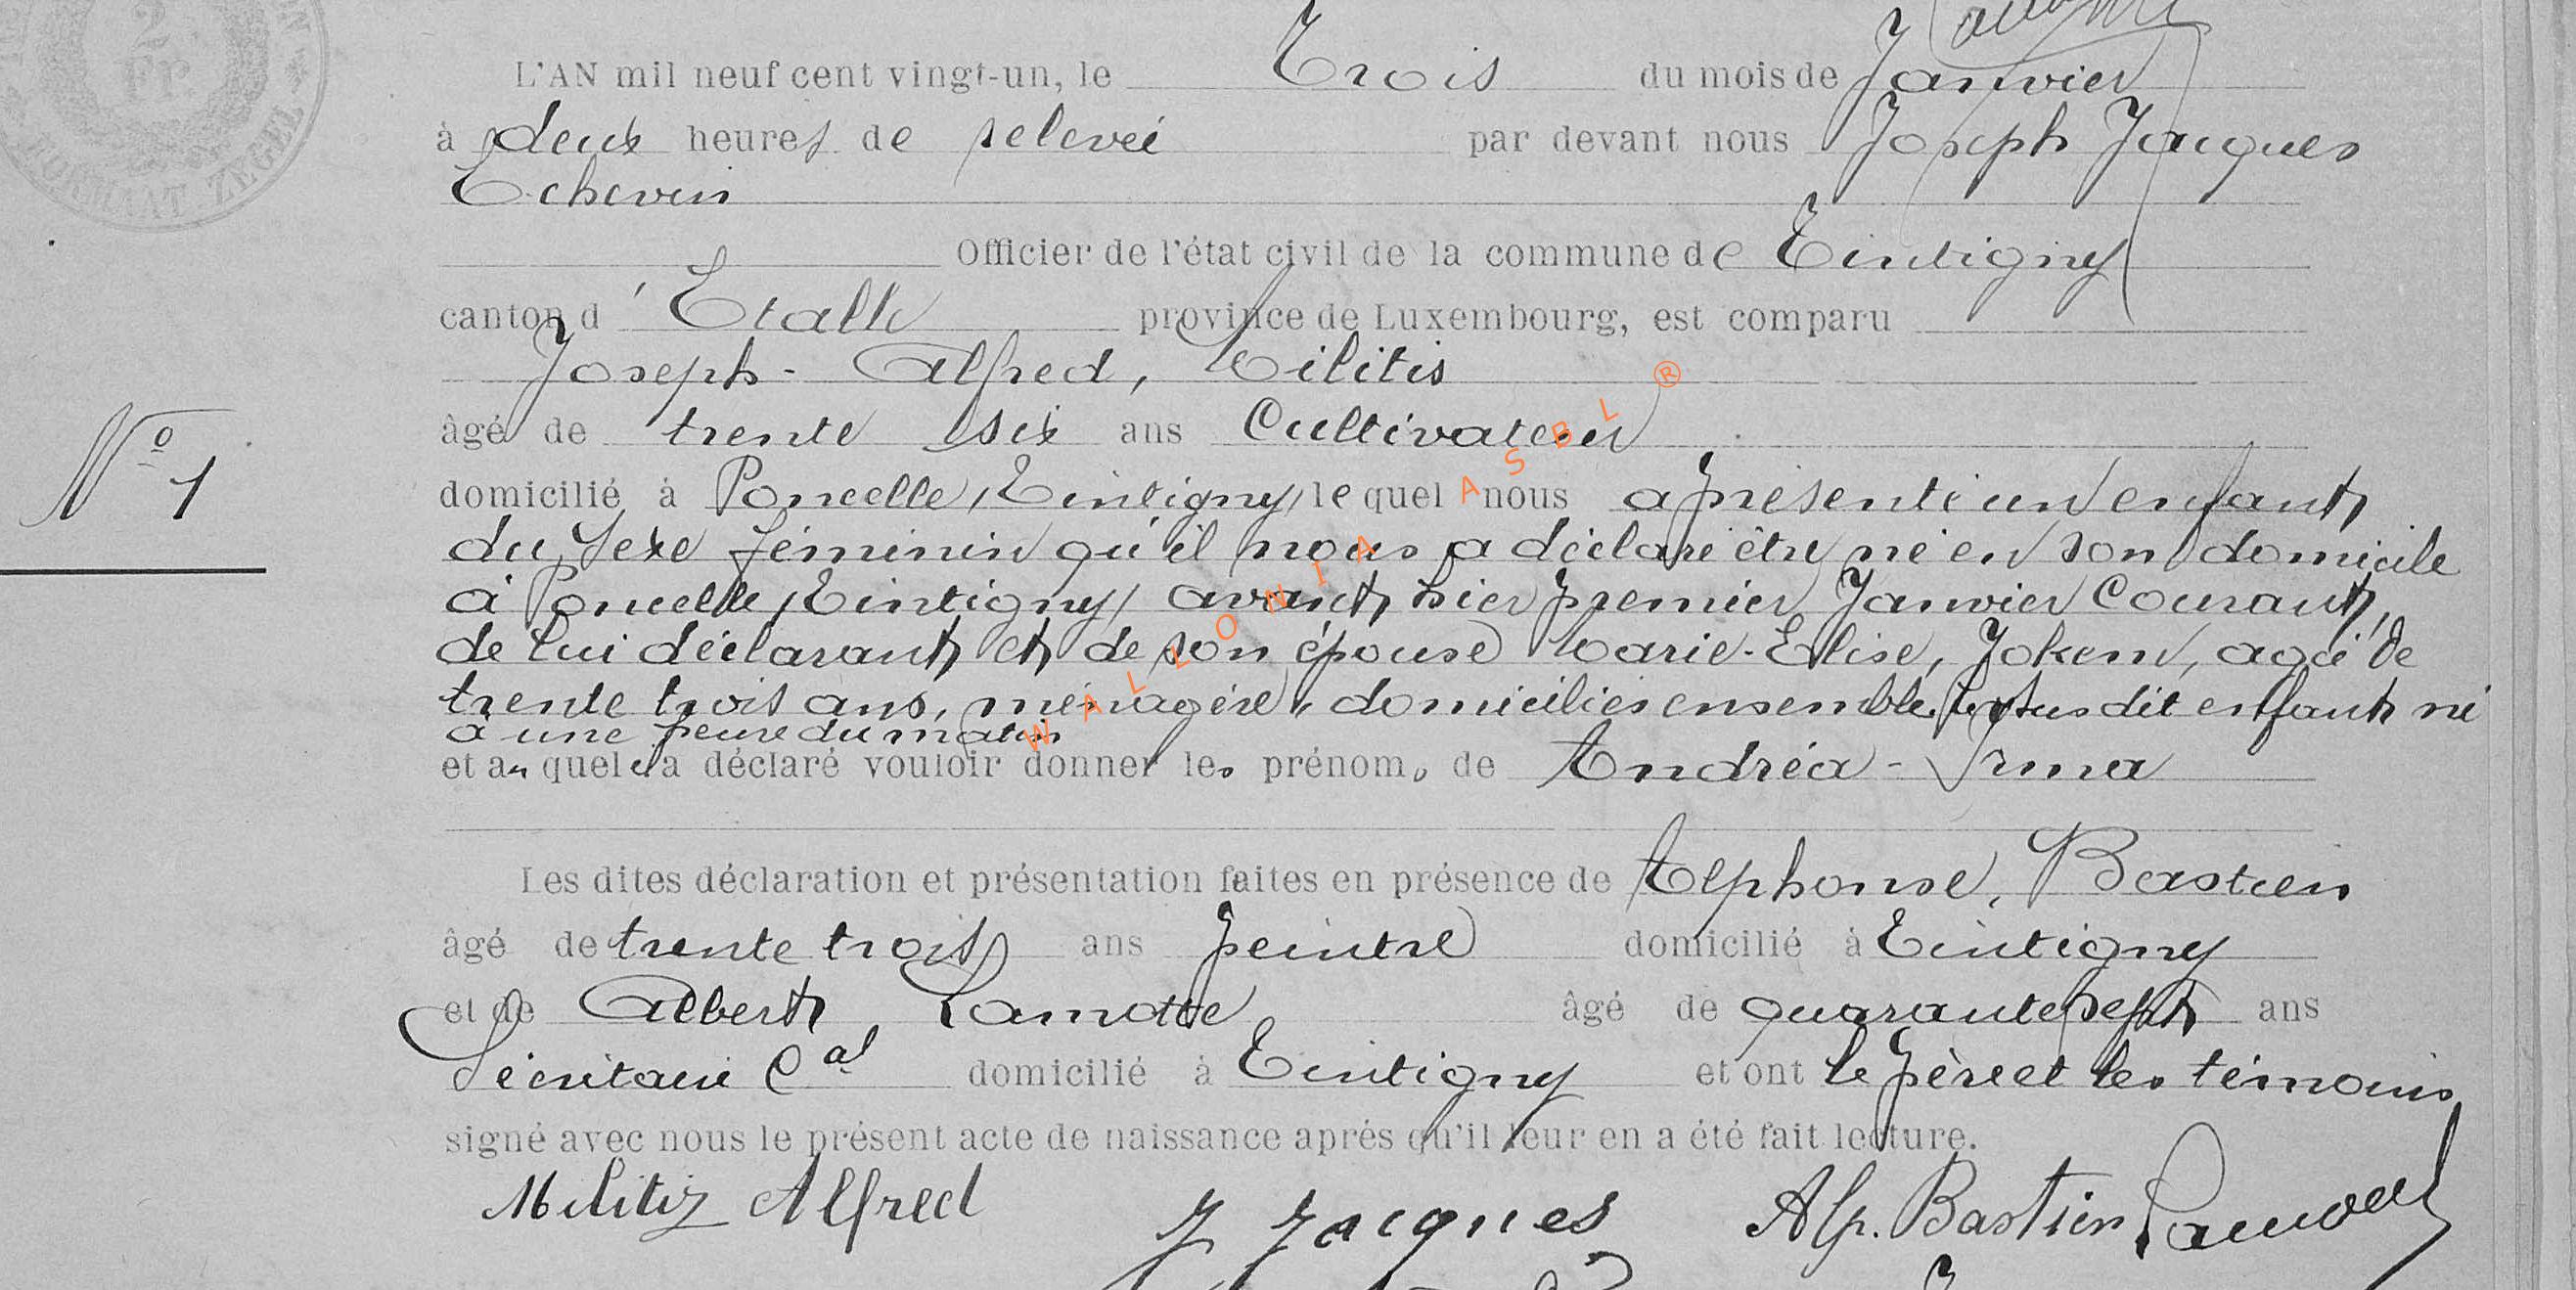 2
Fr
ZEGEL
L'AN mil neuf cent vingt-un, le Trois du mois de Janvier
à deux heures de relevée par devant nous Joseph Jacques
Echevin
Officier de l'état civil de la commune de Tintigny
canton d'Etalle province de Luxembourg, est comparu
Joseph-Alfred, Militis
âgé de trente six ans Cultivateur
N° 1
domicilié à Poncelle, Tintigny, lequel nous a présenté un enfant
du sexe féminin qu'il nous a déclaré être né en son domicile
à Poncelle, Tintigny, avant hier premier Janvier Courant,
de lui déclarant et de son épouse Marie-Elise, Jokem, agée de
trente trois ans, ménagère, domiciliés ensemble, le susdit enfant né
à une heure du matin
et auquel il a déclaré vouloir donner les prénoms de Andréa-Irma
Les dites déclaration et présentation faites en présence de Alphonse, Bastien
âgé de trente trois ans peintre domicilié à Tintigny
et de Albert, Lamotte âgé de quarante sept ans
Sécrétaire Cal domicilié à Tintigny et ont le père et les témoins
signé avec nous le présent acte de naissance après qu'il leur en a été fait lecture.
Militis Alfred J Jacques Alp. Bastien
WALLONIA ASBL ®